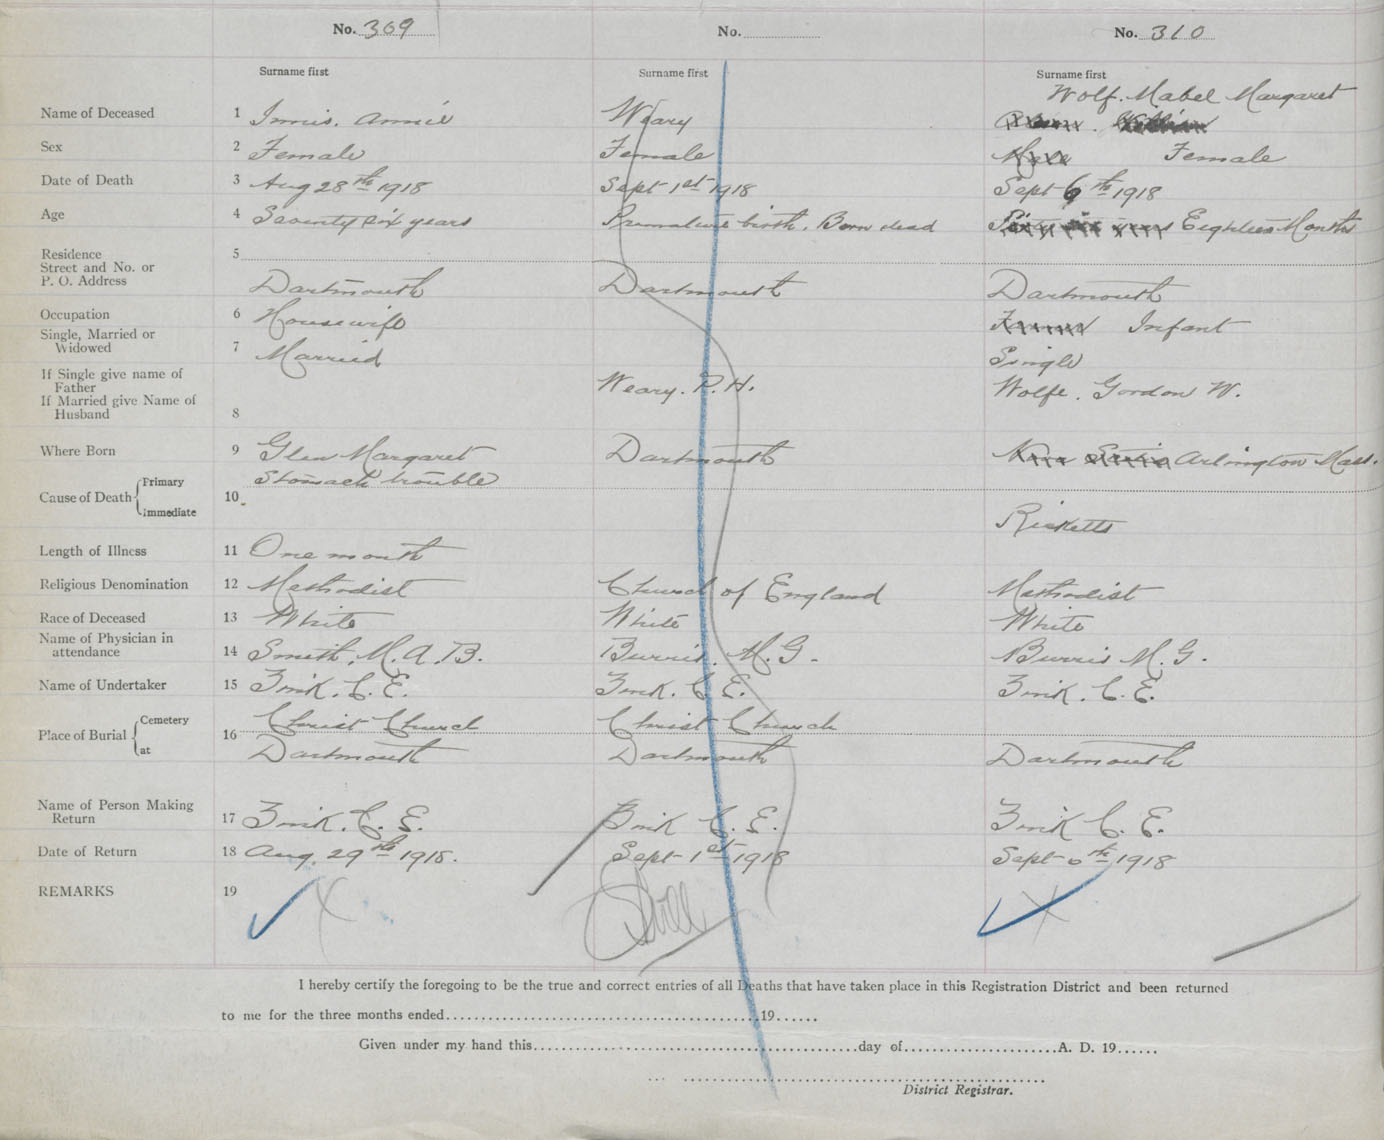 No. 309 No. No. 310
Surname first Surname first Surname first
Wolf. Mabel Margaret
Name of Deceased 1 Innis. Annie Weary
Sex 2 Female Female Female
Date of Death 3 Aug 28th 1918 Sept 1st 1918 Sept 6th 1918
Age 4 Seventy six years Premature birth. Born dead Eighteen Months
Residence 5
Street and No. or
P. O. Address Dartmouth Dartmouth Dartmouth
Occupation 6 Housewife Infant
Single, Married or
Widowed 7 Married Single
If Single give name of
Father Weary. P. H. Wolfe. Gordon W.
If Married give Name of
Husband 8
Where Born 9 Glen Margaret Dartmouth Arlington Mass.
Cause of Death Primary Stomach trouble
10
Immediate Ricketts
Length of Illness 11 One month
Religious Denomination 12 Methodist Church of England Methodist
Race of Deceased 13 White White White
Name of Physician in
attendance 14 Smith. M. A. B. Burris. M. G. Burris M. G.
Name of Undertaker 15 Zink. C. E. Zink. C. E. Zink. C. E.
Place of Burial Cemetery 16 Christ Church Christ Church
at Dartmouth Dartmouth Dartmouth
Name of Person Making
Return 17 Zink. C. E. Zink C. E. Zink C. E.
Date of Return 18 Aug. 29th 1918. Sept 1st 1918 Sept 6th 1918
REMARKS 19 Still
I hereby certify the foregoing to be the true and correct entries of all Deaths that have taken place in this Registration District and been returned
to me for the three months ended 19
Given under my hand this day of A. D. 19
District Registrar.